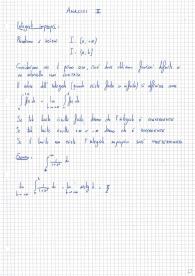 ANALISI II
Integrali impropri:
Prendiamo i seguenti I = [a, +∞)
I = [a, b[
Consideriamo per il primo caso, così dove abbiamo funzioni definite in
un intervallo non limitato
Il valore dell'integrale (quando esiste finito o infinito) si definisce come
∫ f(x) dx = lim ∫ f(x) dx
Se tale limite risulta finito diremo che l'integrale è convergente
Se tale limite risulta +∞ o -∞ diremo che è divergente
Se il limite non esiste l'integrale improprio sarà indeterminato
Esempio: ∫ 1/(1+x²) dx
lim ∫ 1/(1+x²) dx = lim arctg b = π/2